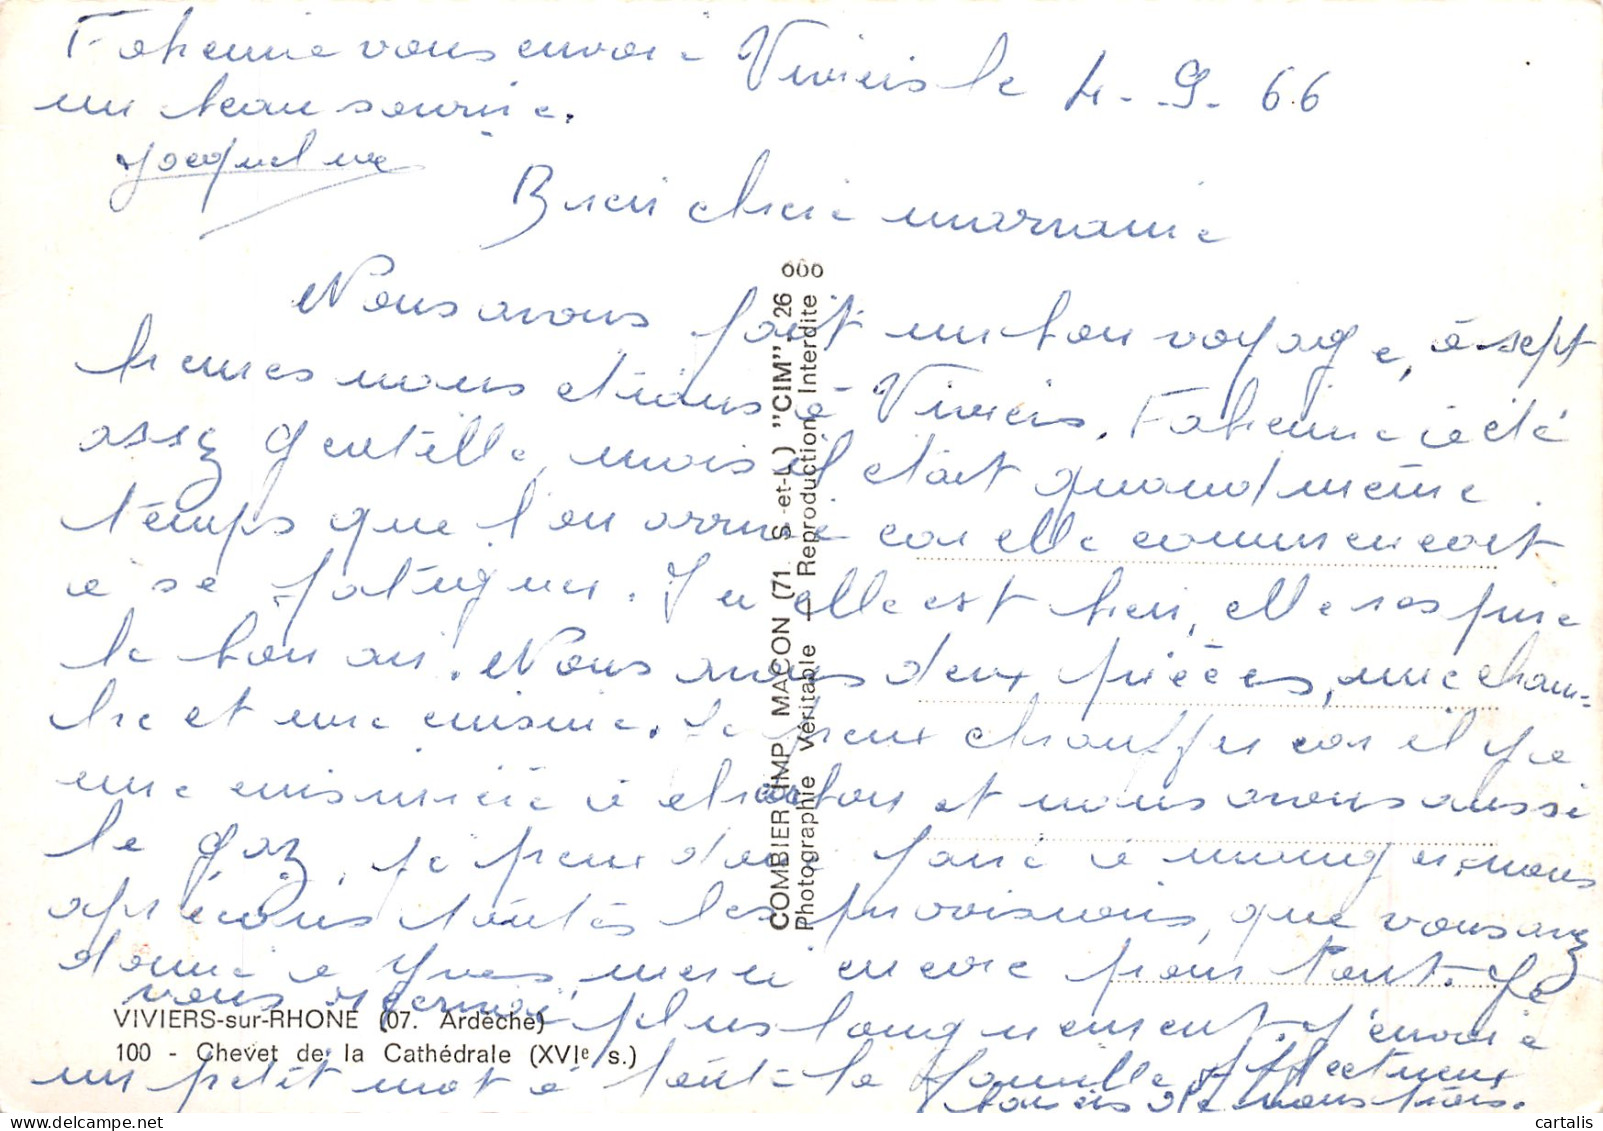 Fabienne vous envoie
un beau sourire.
Jacqueline
Viviers le 4-9-66
Bien chère marraine
Nous avons fait un bon voyage, à sept
heures nous étions à Viviers. Fabienne a été
assez gentille, mais il était quand même
temps que l'on arrive car elle commencait
à se fatiguer. Ici elle est bien, elle respire
le bon air. Nous avons deux pièces, une cham-
bre et une cuisine. Je peux chauffer car il y a
une cuisinière à charbon et nous avons aussi
le gaz, je peux donc faire à manger, nous
apprécions toutes les provisions, que vous avez
donné à Yves, merci encore pour tout. Je
vous écrirai plus longuement. J'envoie
un petit mot à toute la famille. Affectueux
baisers de nous trois.
VIVIERS-sur-RHONE (07. Ardèche)
100 - Chevet de la Cathédrale (XVIe s.)
COMBIER IMP. MACON (71 S-et-L) "CIM" 26
Photographie véritable — Reproduction Interdite
cartalis
delcampe.net